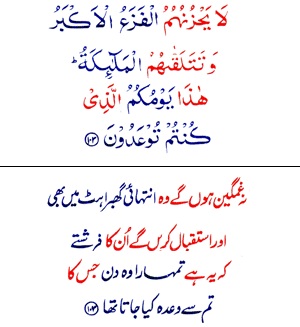 لَا يَحْزُنُهُمُ الْفَزَعُ الْاَكْبَرُ
وَ تَتَلَقّٰىهُمُ الْمَلٰٓئِكَةُ ؕ
هٰذَا يَوْمُكُمُ الَّذِىْ
كُنْتُمْ تُوْعَدُوْنَ ۱۰۳
نہ غمگین ہوں گے وہ انتہائی گھبراہٹ میں بھی
اور استقبال کریں گے اُن کا فرشتے
کہ یہ ہے تمہارا وہ دن جس کا
تم سے وعدہ کیا جاتا تھا ۱۰۳